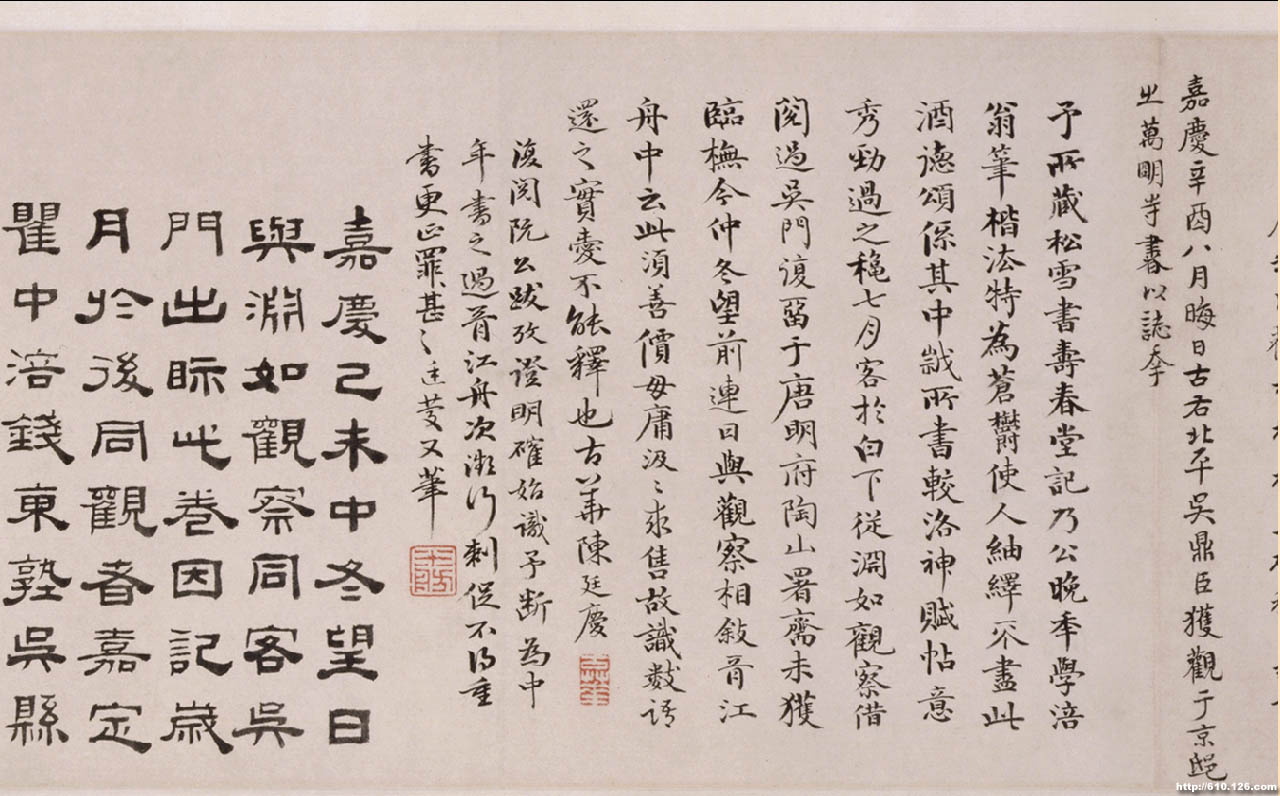 嘉慶辛酉八月晦日古右北平吳鼎臣獲觀于京邸
之萬明寺書以誌幸
予所藏松雪書壽春堂記乃公晚年學涪
翁筆楷法特為蒼鬱使人紬繹不盡此
酒德頌係其中誠所書較洛神賦帖意
秀勁過之龝七月客於白下從淵如觀察借
閱過吳門復留于唐明府陶山署齋未獲
臨橅今仲冬望前連日與觀察相敘胥江
舟中云此須善價毋庸汲〻求售故識數語
還之實愛不能釋也古華陳廷慶
復閱阮公跋攷證明確始識予斷為中
年書之過胥江舟次潮行刺促不得重
書更正罪甚〻廷慶又筆
嘉慶己未中冬望日
與淵如觀察同客吳
門出眎此卷因記歲
月於後同觀者嘉定
瞿中涪錢東塾吳縣
http://610.126.com